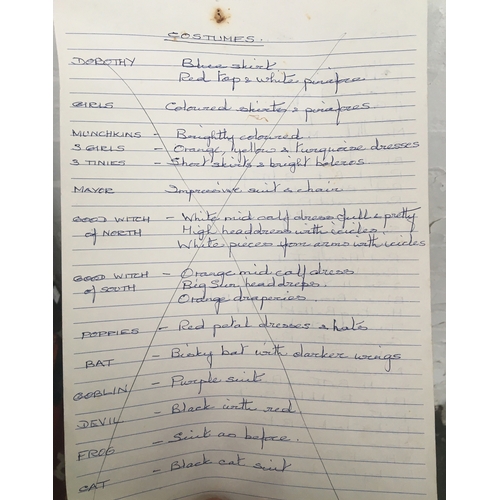 COSTUMES.
DOROTHY Blue skirt.
Red top & white pinafore
GIRLS Coloured skirts & pinafores
MUNCHKINS - Brightly coloured.
3 GIRLS - Orange, yellow & turquoise dresses
3 TINIES - Short skirts & bright boleros
MAYOR Impressive suit & chain
GOOD WITCH - White mid calf dress (full & pretty
of NORTH High headdress with icicles.
White pieces from arms with icicles
GOOD WITCH - Orange mid calf dress
of SOUTH Big Sun headdress.
Orange draperies.
POPPIES - Red petal dresses & hats
BAT - bat with darker wings
GOBLIN - Purple suit
DEVIL - Black with red
FROG - Suit as before.
CAT - Black cat suit